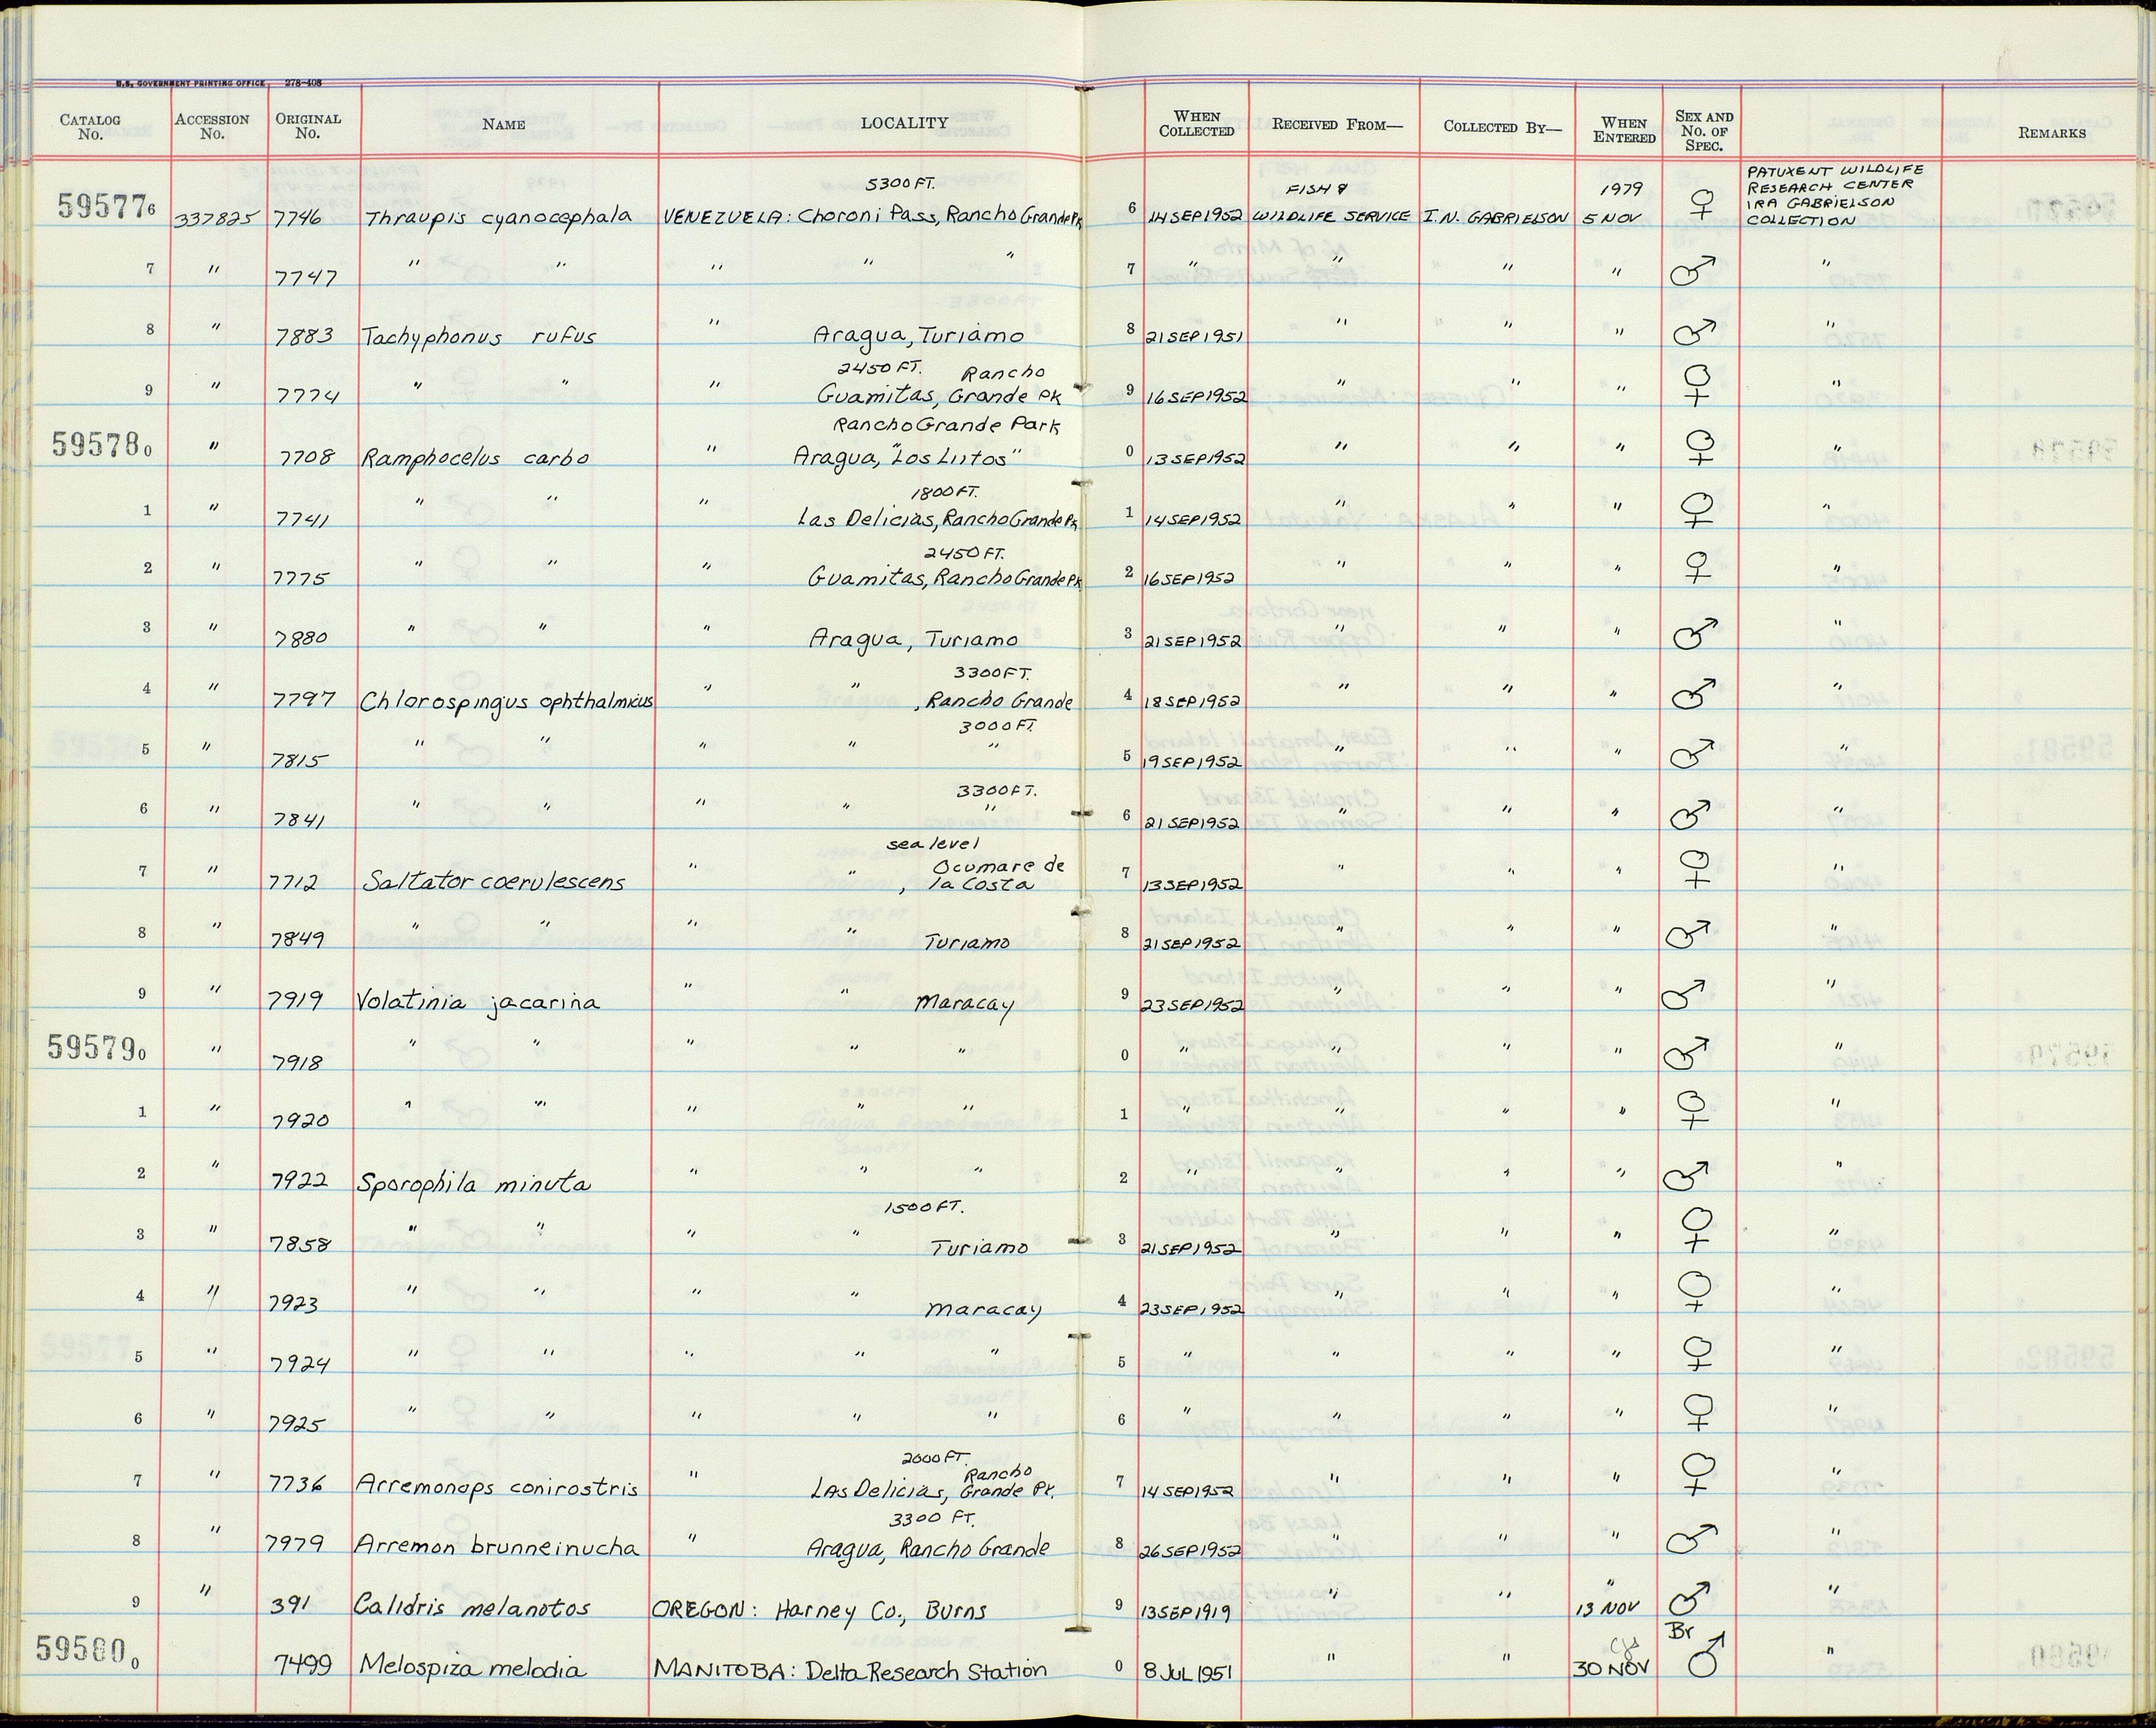 U.S. GOVERNMENT PRINTING OFFICE 278-408
CATALOG No. ACCESSION No. ORIGINAL No. NAME LOCALITY WHEN COLLECTED RECEIVED FROM— COLLECTED BY— WHEN ENTERED SEX AND No. OF SPEC. REMARKS
595776 337825 7746 Thraupis cyanocephala VENEZUELA: Choroni Pass, Rancho Grande Pk 5300 FT. 6 14 SEP 1952 FISH & WILDLIFE SERVICE I.N. GABRIELSON 1979 5 NOV ♀ PATUXENT WILDLIFE RESEARCH CENTER IRA GABRIELSON COLLECTION
7 " 7747 " " " " " 7 " " " " ♂ "
8 " 7883 Tachyphonus rufus " Aragua, Turiamo 8 21 SEP 1951 " " " ♂ "
9 " 7774 " " " 2450 FT. Guamitas, Rancho Grande Pk 9 16 SEP 1952 " " " ♀ "
595780 " 7708 Ramphocelus carbo " Rancho Grande Park Aragua, "Los Liitos" 0 13 SEP 1952 " " " ♀ "
1 " 7741 " " " 1800 FT. Las Delicias, Rancho Grande Pk 1 14 SEP 1952 " " " ♀ "
2 " 7775 " " " 2450 FT. Guamitas, Rancho Grande Pk 2 16 SEP 1952 " " " ♀ "
3 " 7880 " " " Aragua, Turiamo 3 21 SEP 1952 " " " ♂ "
4 " 7797 Chlorospingus ophthalmicus " " 3300 FT. , Rancho Grande 4 18 SEP 1952 " " " ♂ "
5 " 7815 " " " " 3000 FT. " 5 19 SEP 1952 " " " ♂ "
6 " 7841 " " " " 3300 FT. " 6 21 SEP 1952 " " " ♂ "
7 " 7712 Saltator coerulescens " " sea level , Ocumare de la Costa 7 13 SEP 1952 " " " ♀ "
8 " 7849 " " " " Turiamo 8 21 SEP 1952 " " " ♂ "
9 " 7919 Volatinia jacarina " " Maracay 9 23 SEP 1952 " " " ♂ "
595790 " 7918 " " " " " 0 " " " " ♂ "
1 " 7920 " " " " " 1 " " " " ♀ "
2 " 7922 Sporophila minuta " " " 2 " " " " ♂ "
3 " 7858 " " " " 1500 FT. Turiamo 3 21 SEP 1952 " " " ♀ "
4 " 7923 " " " " Maracay 4 23 SEP 1952 " " " ♀ "
5 " 7924 " " " " " 5 " " " " ♀ "
6 " 7925 " " " " " 6 " " " " ♀ "
7 " 7736 Arremonops conirostris " 2000 FT. LAs Delicias, Rancho Grande Pk. 7 14 SEP 1952 " " " ♀ "
8 " 7979 Arremon brunneinucha " 3300 FT. Aragua, Rancho Grande 8 26 SEP 1952 " " " ♂ "
9 " 391 Calidris melanotos OREGON: Harney Co., Burns 9 13 SEP 1919 " " " 13 NOV ♂ "
595800 7499 Melospiza melodia MANITOBA: Delta Research Station 0 8 JUL 1951 " " 30 NOV Br ♂ "